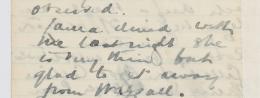 observed.
Laura dined with
me last night she
is very thin but
glad to get away
from Walsall.